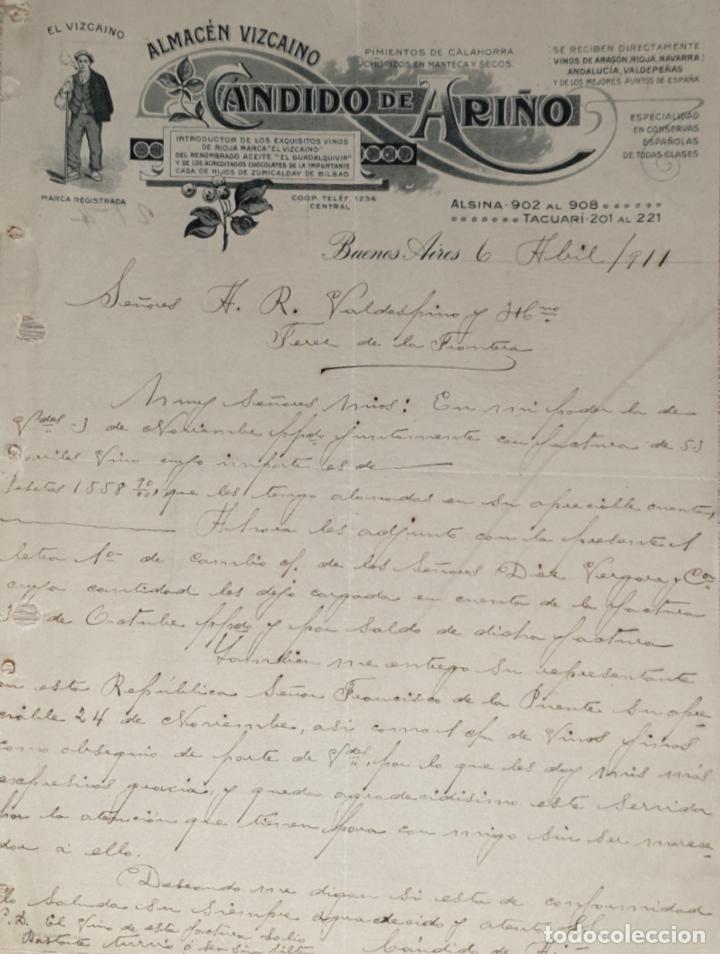 EL VIZCAINO
ALMACÉN VIZCAINO
PIMIENTOS DE CALAHORRA
CHORIZOS EN MANTECA Y SECOS.
SE RECIBEN DIRECTAMENTE
VINOS DE ARAGÓN, RIOJA, NAVARRA
ANDALUCÍA, VALDEPEÑAS
Y DE LOS MEJORES PUNTOS DE ESPAÑA
CANDIDO DE ARIÑO
INTRODUCTOR DE LOS EXQUISITOS VINOS
DE RIOJA MARCA "EL VIZCAINO"
DEL RENOMBRADO ACEITE "EL GUADALQUIVIR"
Y DE LOS ACREDITADOS CHOCOLATES DE LA IMPORTANTE
CASA DE HIJOS DE ZURICALDAY DE BILBAO
ESPECIALIDAD
EN CONSERVAS
ESPAÑOLAS
DE TODAS CLASES
MARCA REGISTRADA
COOP. TELÉF. 1234
CENTRAL
ALSINA - 902 AL 908
TACUARÍ - 201 AL 221
Buenos Aires 6 Abil /911
Señores A. R. Valdespino y Hno
Jerez de la Frontera
Muy Señores Mios: En mi poder la de
Vdes 3 de Noviembre ppdo juntamente con factura de 53
Barriles Vino cuyo importe es de
Pesetas 1558 que les tengo abonadas en su apreciable cuenta,
Ahora les adjunto con la presente 1
letra 1a de cambio c/. de los Señores Diez Vergara y Cia
cuya cantidad les dejo cargada en cuenta de la factura
3 de Octubre ppdo y por saldo de dicha factura
Tambien me entrego su representante
en esta República Señor Francisco de la Puente su apre
ciable 24 de Noviembre, asi como 1 c/n de Vinos finos
como obsequio de parte de Vdes, por lo que les doy mis más
expresivas gracia, y queda agradecidisimo este servidor
por la atención que tienen para con migo sin ser merece
dor á ello.
Deseando me digan si esta de conformidad
lo saluda su siempre agradecido y atento
P.D. El Vino de esta factura salio
Bastante turvio ó sea sin
Cándido de
todocoleccion